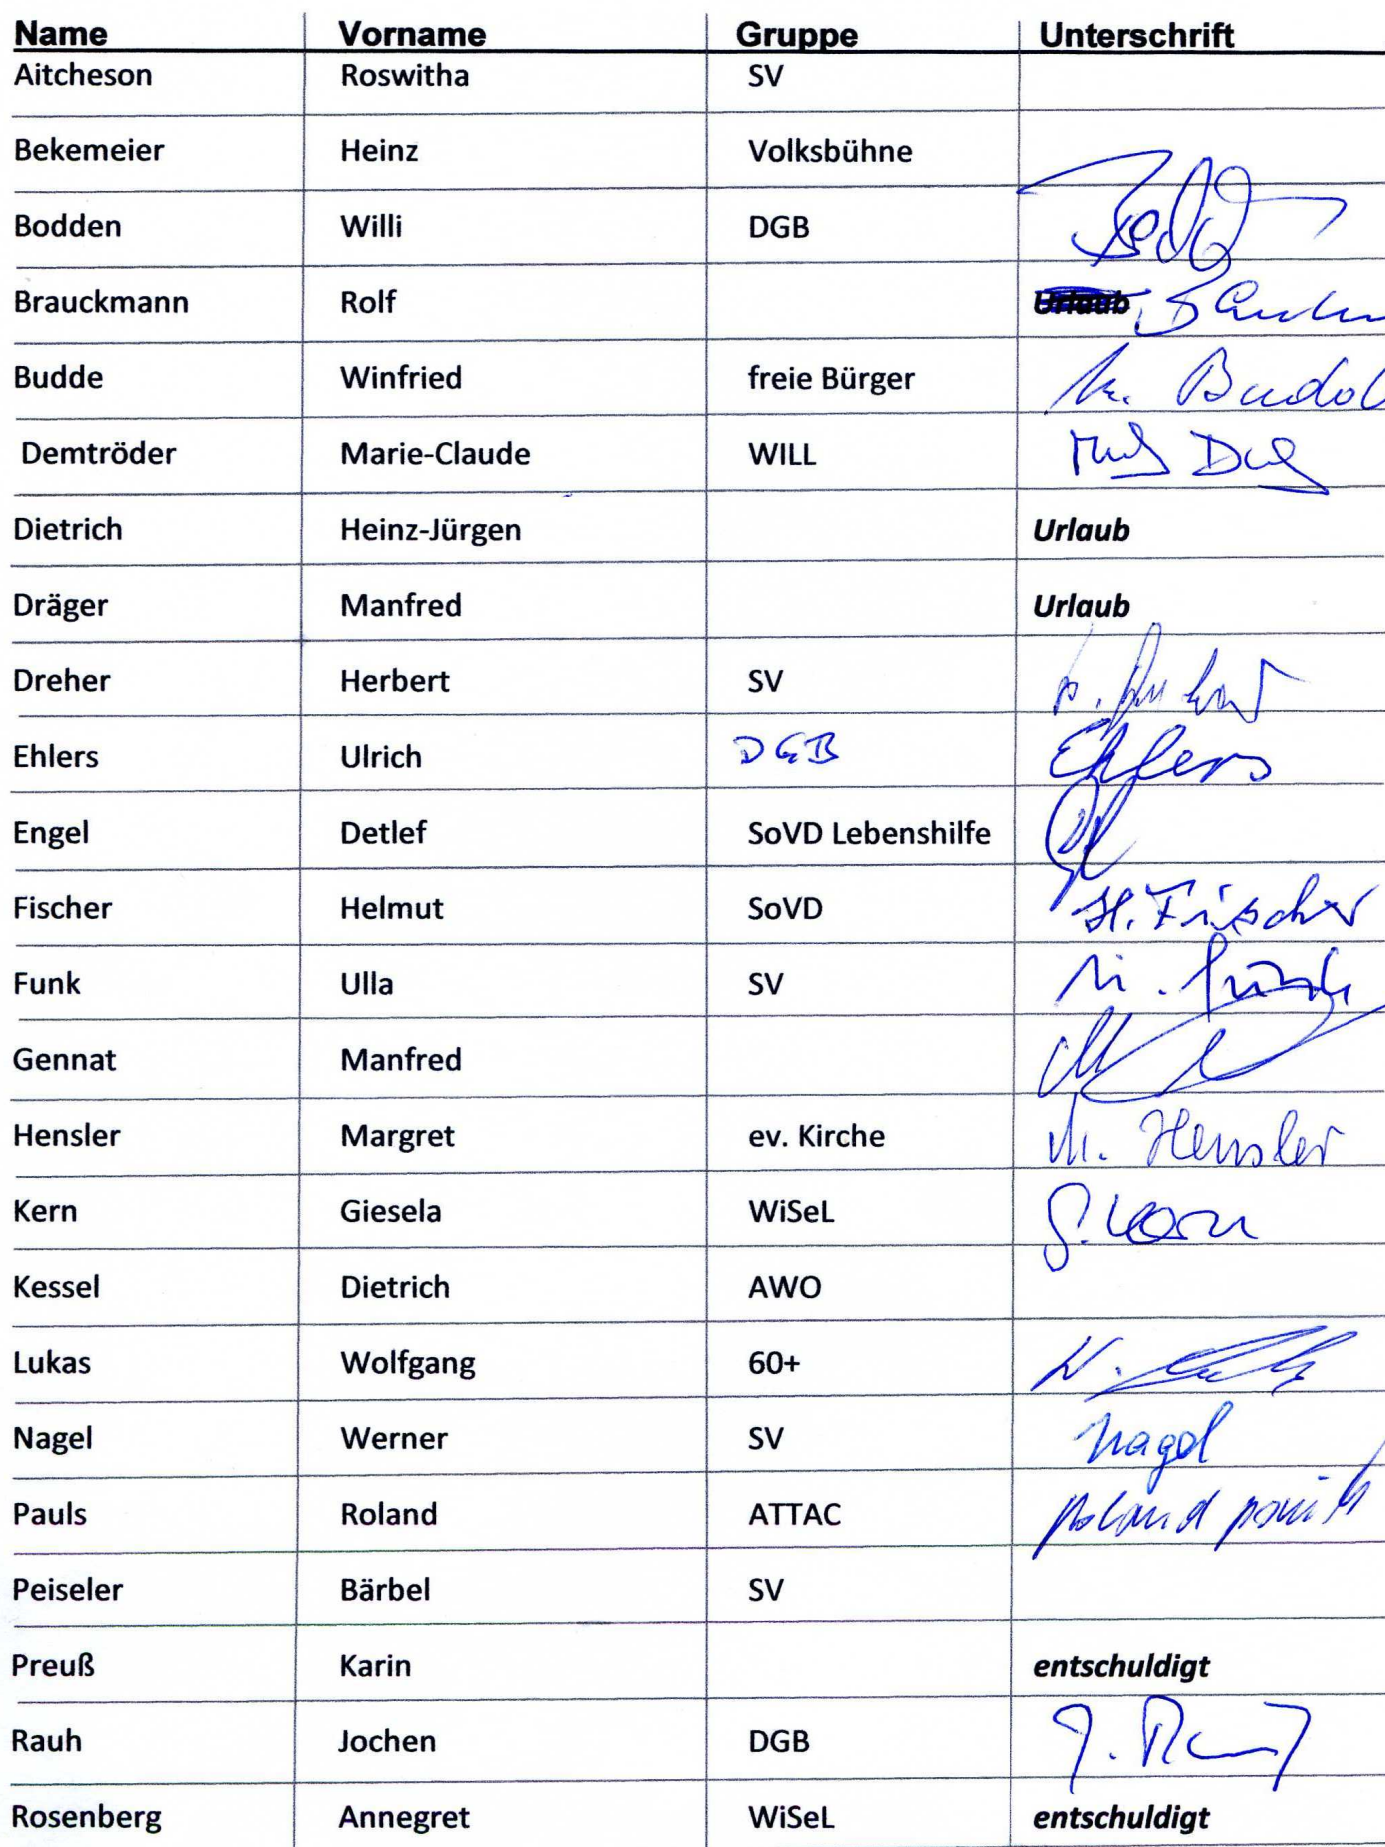 Name Vorname Gruppe Unterschrift
Aitcheson Roswitha SV
Bekemeier Heinz Volksbühne
Bodden Willi DGB
Brauckmann Rolf Urlaub
Budde Winfried freie Bürger Budde
Demtröder Marie-Claude WILL
Dietrich Heinz-Jürgen Urlaub
Dräger Manfred Urlaub
Dreher Herbert SV
Ehlers Ulrich DGB Ehlers
Engel Detlef SoVD Lebenshilfe
Fischer Helmut SoVD H. Fischer
Funk Ulla SV
Gennat Manfred
Hensler Margret ev. Kirche M. Hensler
Kern Giesela WiSeL G. Kern
Kessel Dietrich AWO
Lukas Wolfgang 60+
Nagel Werner SV Nagel
Pauls Roland ATTAC Roland Pauls
Peiseler Bärbel SV
Preuß Karin entschuldigt
Rauh Jochen DGB
Rosenberg Annegret WiSeL entschuldigt